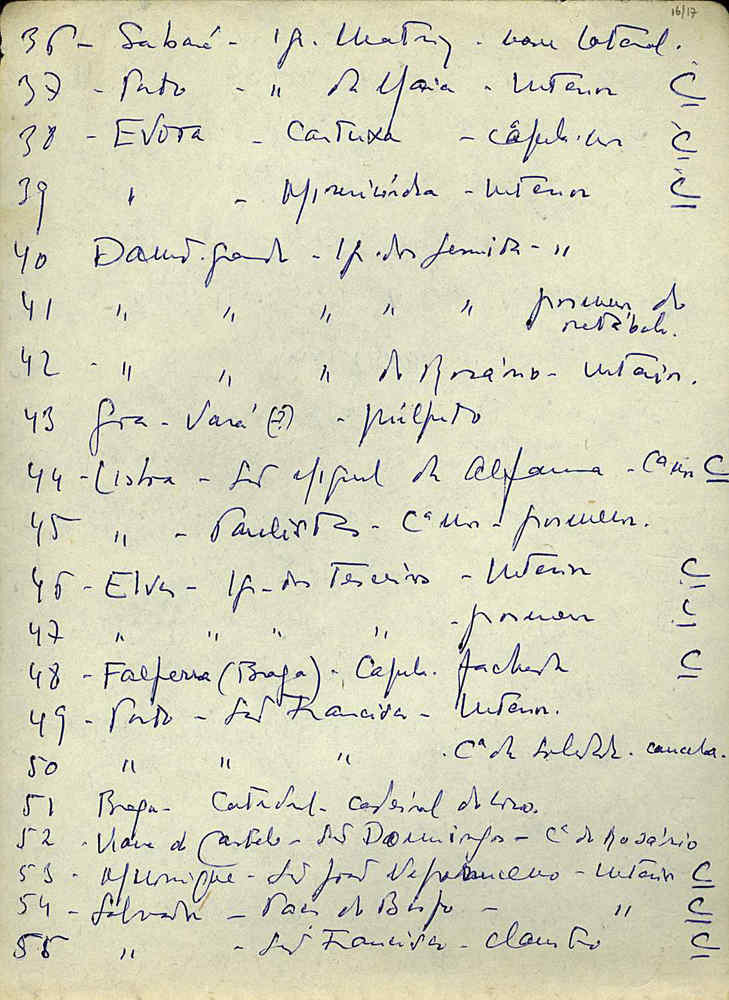 16/17
36 - Sabará - Ig. Matriz - nave lateral.
37 - Porto - " da Maia - Interior C
38 - Evora - Cartuxa - Cap.-mor C
39 " - Misericórdia - Interior C
40 Diamt. Grande - Ig. dos Jesuitas - "
41 " " " " " pormenor do
retábulo.
42 - " " " do Rosário - Interior.
43 Goa - Vará (?) - púlpito
44 - Lisboa - São Miguel de Alfama - Cª mor C
45 " - Paulistas - Cª mor - pormenor.
46 - Elvas - Ig. dos Terceiros - Interior C
47 " " " " - pormenor C
48 - Falperra (Braga) - Capela. fachada C
49 - Porto - São Francisco - Interior.
50 " " " - Cª da Soledade. cancela.
51 Braga - Catedral - cadeiral do coro.
52 - Viana do Castelo - São Domingos - Cª do Rosário
53 - Munique - São João Nepomuceno - Interior C
54 - Salvador - Paço do Bispo - " C
55 " - São Francisco - claustro C